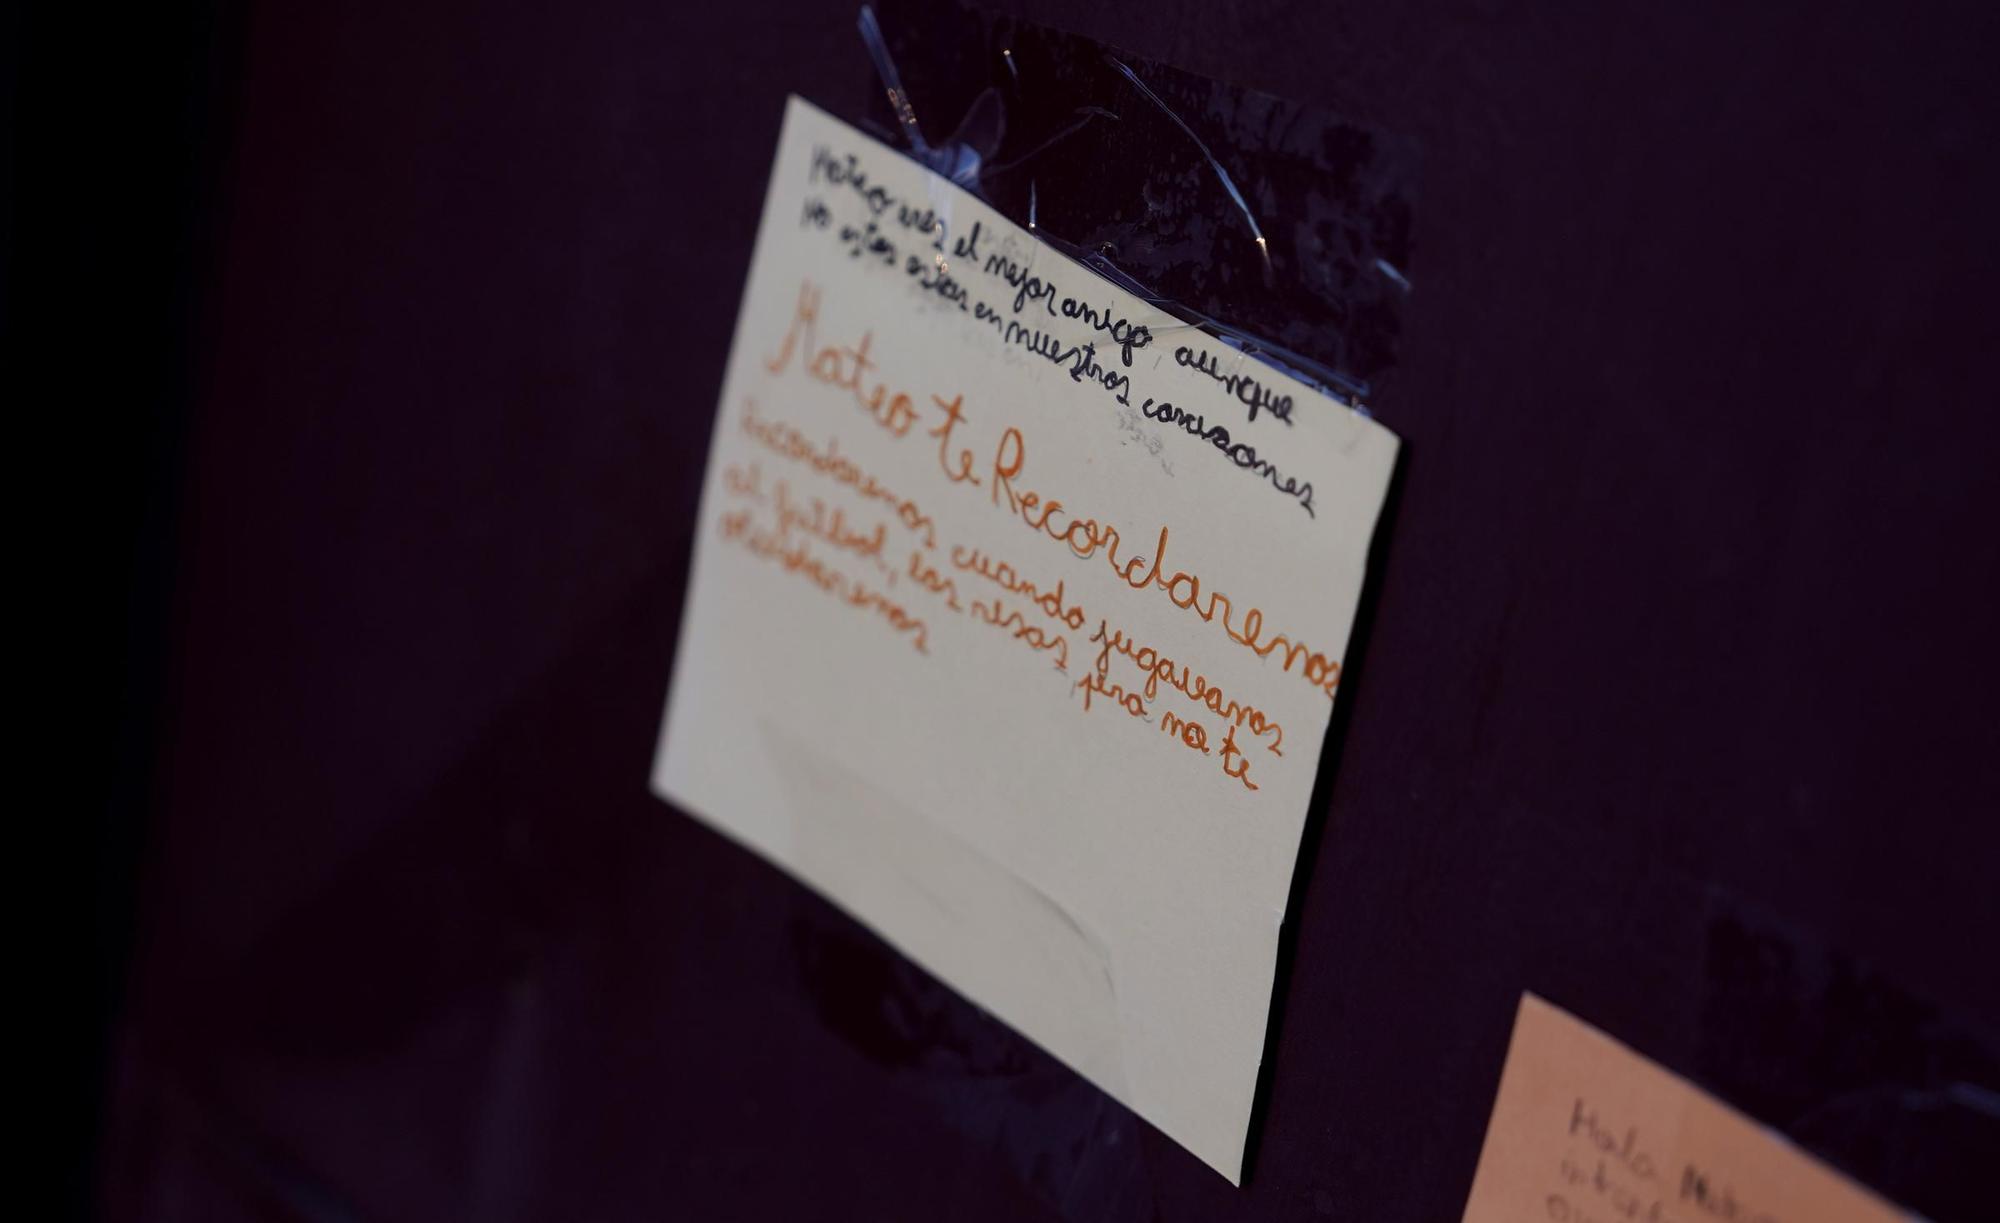 Mateo eres el mejor amigo aunque
no estes estas en nuestros corazones
Mateo te Recordaremos
Recordaremos cuando jugavamos
al futbol, las risas, pero no te
olvidaremos
Hola Mateo